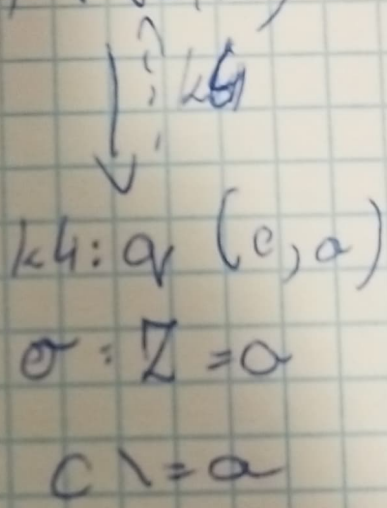 k4: q (c, a)
σ: Z = a
c \= a